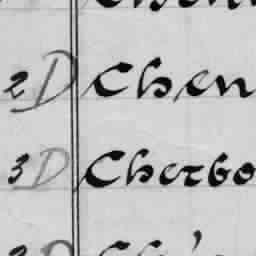 2 D Chen
3 D Cherbo